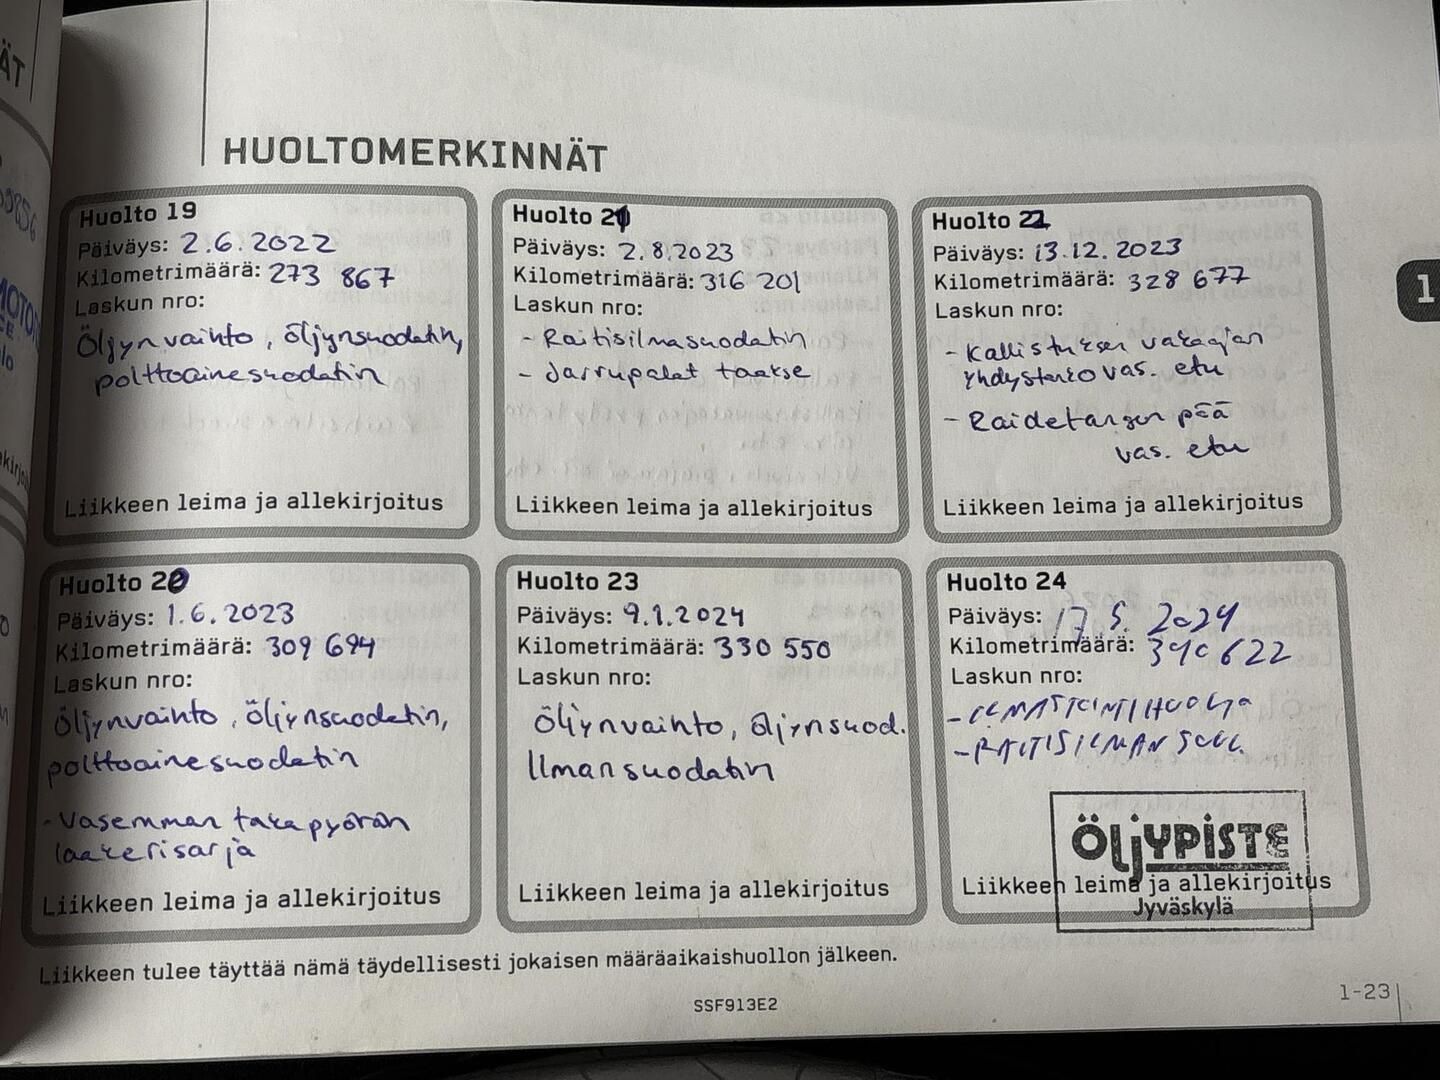 ÄT
HUOLTOMERKINNÄT
Huolto 19
Päiväys: 2.6.2022
Kilometrimäärä: 273 867
Laskun nro:
Öljynvaihto, öljynsuodatin,
polttoainesuodatin
Liikkeen leima ja allekirjoitus
Huolto 21
Päiväys: 2.8.2023
Kilometrimäärä: 316 201
Laskun nro:
- Raitisilmasuodatin
- Jarrupalat taakse
Liikkeen leima ja allekirjoitus
Huolto 22
Päiväys: 13.12.2023
Kilometrimäärä: 328 677
Laskun nro:
- Kallistuksen vakaajan
yhdystanko vas. etu
- Raidetangon pää
vas. etu
Liikkeen leima ja allekirjoitus
1
Huolto 20
Päiväys: 1.6.2023
Kilometrimäärä: 309 694
Laskun nro:
Öljynvaihto, Öljynsuodatin,
polttoainesuodatin
- Vasemman takapyörän
laakerisarja
Liikkeen leima ja allekirjoitus
Huolto 23
Päiväys: 9.1.2024
Kilometrimäärä: 330 550
Laskun nro:
Öljynvaihto, öljynsuod.
Ilmansuodatin
Liikkeen leima ja allekirjoitus
Huolto 24
Päiväys: 17.5.2024
Kilometrimäärä: 340 622
Laskun nro:
- ILMASTOINTIHUOLTO
- RAITISILMAN SUOD.
ÖLJYPISTE
Liikkeen leima ja allekirjoitus
Jyväskylä
Liikkeen tulee täyttää nämä täydellisesti jokaisen määräaikaishuollon jälkeen.
SSF913E2
1-23